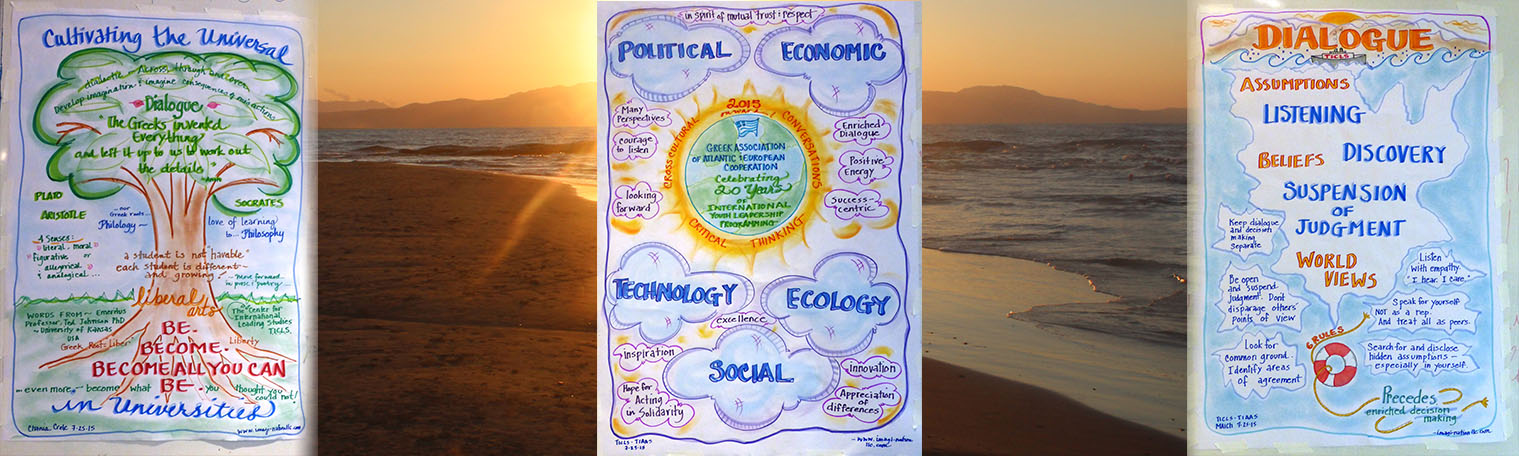 Cultivating the Universal
dialectic - Across, through and over
Develop imagination & imagine consequences of our actions
Dialogue
"The Greeks invented
Everything
and left it up to us to work out
the details"
PLATO
ARISTOTLE
SOCRATES
...our
Greek roots...
Philology
love of learning
to... Philosophy
4 Senses:
literal moral
figurative or
allegorical
& analogical...
a student is not 'havable'
each student is different
and growing.
... move forward
in prose & poetry...
liberal
arts
WORDS FROM ~ Emeritus
Professor Ted Johnson PhD
~ University of Kansas
USA
The Center for
International
Leading Studies
TICLS.
Greek Root: Liber
Liberty
BE.
BECOME.
BECOME ALL YOU CAN
BE.
... even more ~ become what
you thought you
could not!
in Universities
Chania Crete 7-25-15
www.imagi-nationllc.com
in spirit of mutual trust & respect
POLITICAL
ECONOMIC
Many
Perspectives
courage
to listen
looking
forward
2015
CROSS CULTURAL
CONVERSATIONS
CRITICAL THINKING
GREEK ASSOCIATION
OF ATLANTIC & EUROPEAN
COOPERATION
Celebrating
20 Years
OF
INTERNATIONAL
YOUTH LEADERSHIP
PROGRAMMING
Enriched
Dialogue
Positive
Energy
Success-
centric
TECHNOLOGY
ECOLOGY
excellence
inspiration
SOCIAL
innovation
Hope for
Acting
in Solidarity
Appreciation
of
differences
TICLS - TIAAS
7-25-15
~ www.imagi-nation
llc.com
DIALOGUE
TICLS
ASSUMPTIONS
LISTENING
BELIEFS DISCOVERY
SUSPENSION
OF
JUDGMENT
WORLD
VIEWS
Keep dialogue
and decision
making
separate
Be open
and suspend
judgment. Don't
disparage others'
points of view
Look for
common ground.
Identify areas
of agreement
Listen
with empathy
"I hear. I care."
Speak for yourself
Not as a rep.
And treat all as peers.
6 RULES
Search for and disclose
hidden assumptions ~
especially in yourself.
Precedes
enriched decision
making
TICLS - TIAAS
MARCH 7-25-15
~imagi-nationllc.com